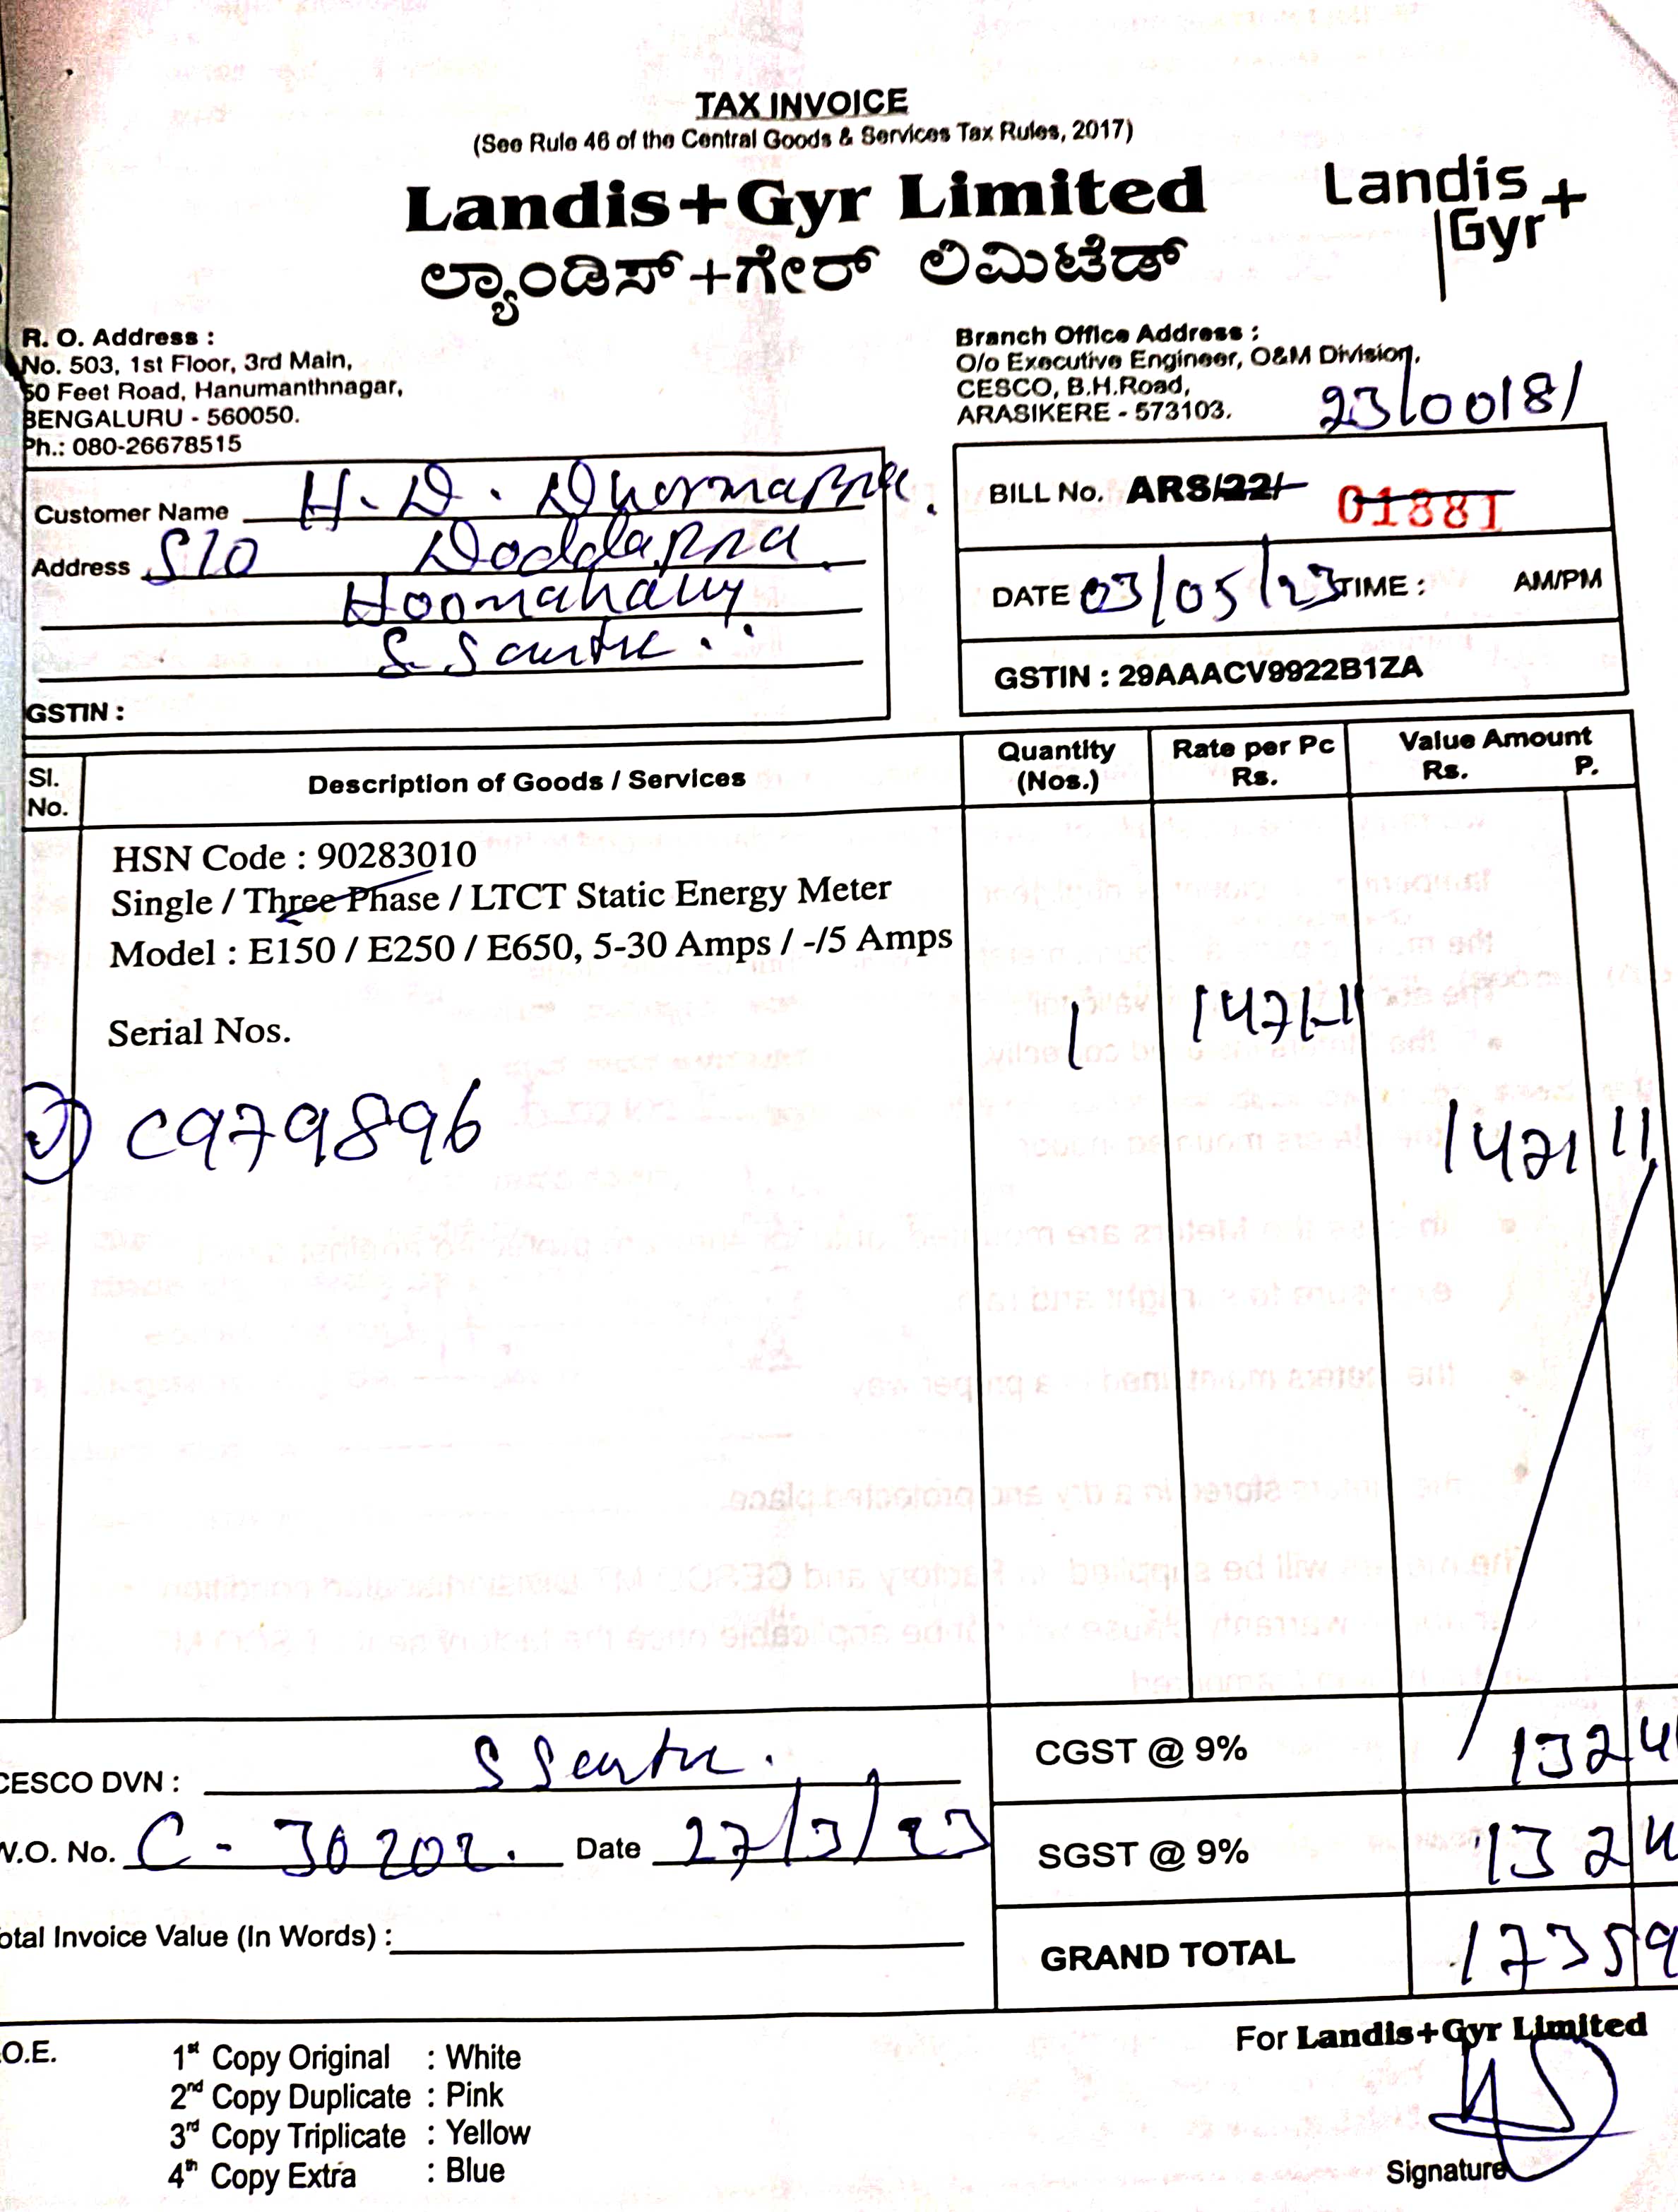 TAX INVOICE
(See Rule 46 of the Central Goods & Services Tax Rules, 2017)
Landis+Gyr Limited
ಲ್ಯಾಂಡಿಸ್+ಗೇರ್ ಲಿಮಿಟೆಡ್
Landis
Gyr+
R. O. Address :
No. 503, 1st Floor, 3rd Main,
50 Feet Road, Hanumanthnagar,
BENGALURU - 560050.
Ph.: 080-26678515
Branch Office Address :
O/o Executive Engineer, O&M Division,
CESCO, B.H.Road,
ARASIKERE - 573103.
Customer Name H. D. Dharmappa.
Address S/O Doddappa
S. Santhe
GSTIN :
BILL No. ARS/22/ 01881
DATE 03/05/23 TIME : AM/PM
GSTIN : 29AAACV9922B1ZA
Sl. No. Description of Goods / Services Quantity (Nos.) Rate per Pc Rs. Value Amount Rs. P.
HSN Code : 90283010
Single / Three Phase / LTCT Static Energy Meter
Model : E150 / E250 / E650, 5-30 Amps / -/5 Amps
Serial Nos. 1 1471-11
C979896
1471 11
CESCO DVN : S Santhe. CGST @ 9% 132 4
W.O. No. C - 30202. Date 27/3/23 SGST @ 9% 132 4
otal Invoice Value (In Words) : GRAND TOTAL 1735 9
.O.E.
1st Copy Original : White
2nd Copy Duplicate : Pink
3rd Copy Triplicate : Yellow
4th Copy Extra : Blue
For Landis+Gyr Limited
Signature